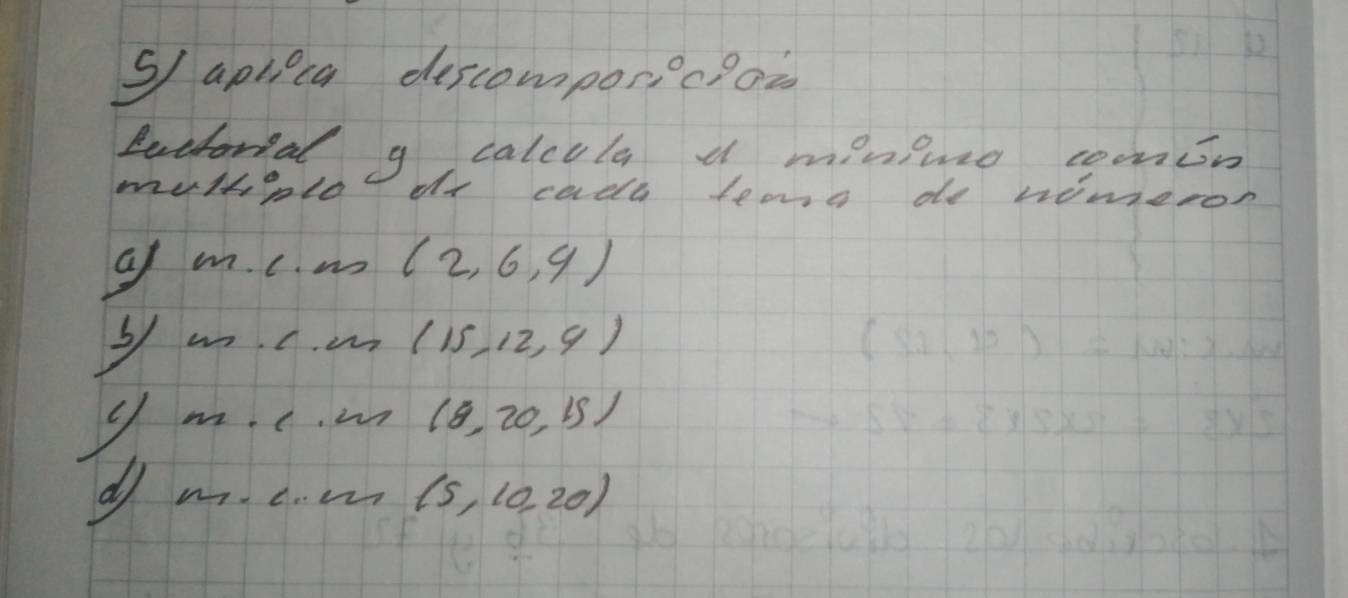 5) aplica descomposición
factorial y calcula el mínimo común
multiplo de cada tema de números
a) m.c.m (2, 6, 9)
b) m.c.m (15, 12, 9)
c) m.c.m (8, 20, 15)
d) m.c.m (5, 10, 20)